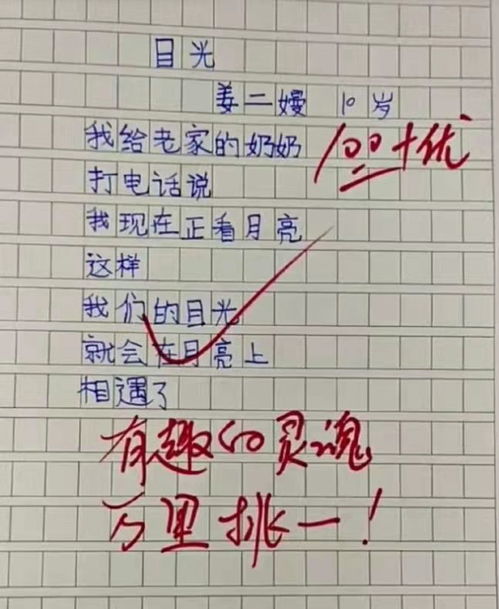 目光
姜二嫚 10岁
100+优
我给老家的奶奶
打电话说
我现在正看月亮
这样
我们的目光
就会在月亮上
相遇了
有趣的灵魂
万里挑一！